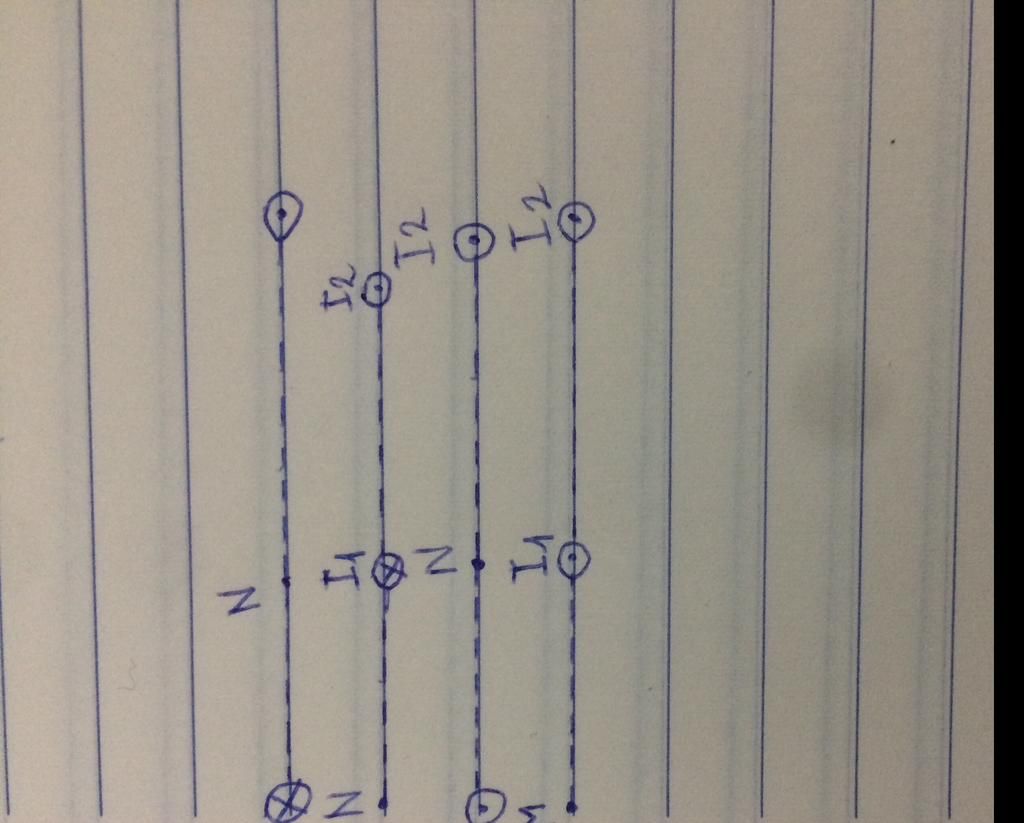 N
N I1 I2
N I2
I1 I2